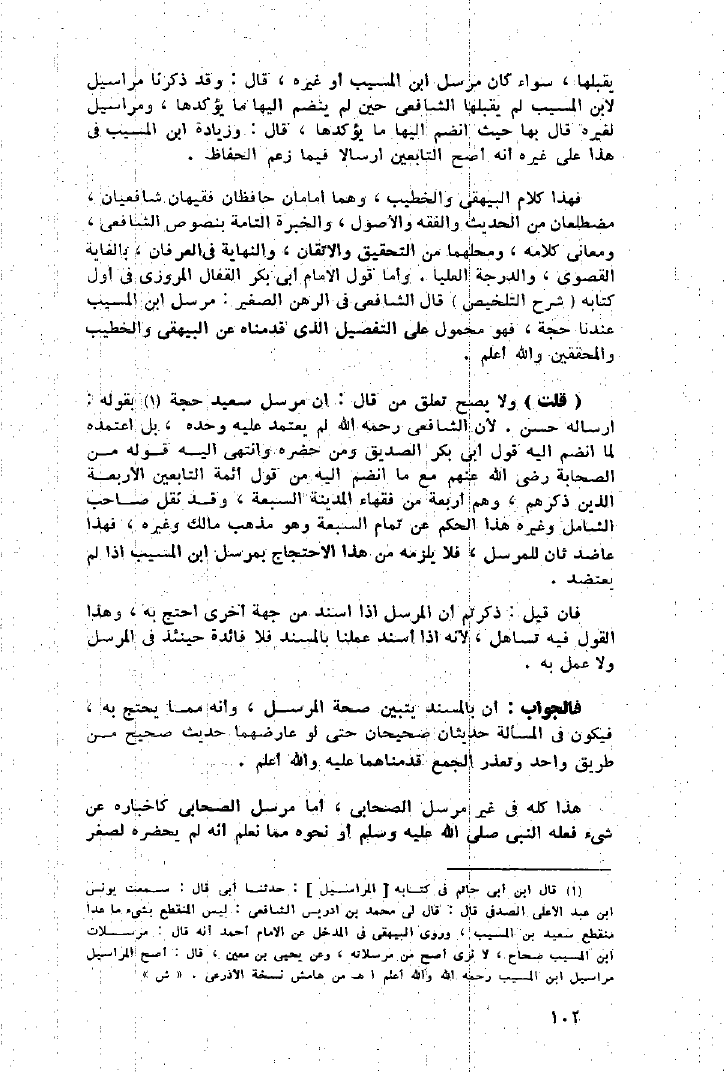 يقبلها ، سواء كان مرسل ابن المسيب أو غيره ، قال : وقد ذكرنا مراسيل
لابن المسيب لم يقبلها الشافعى حين لم ينضم اليها ما يؤكدها ، ومراسيل
لغيره قال بها حيث انضم اليها ما يؤكدها ، قال : وزيادة ابن المسيب فى
هذا على غيره أنه أصح التابعين ارسالا فيما زعم الحفاظ .
فهذا كلام البيهقى والخطيب ، وهما امامان حافظان فقيهان شافعيان ،
مضطلعان من الحديث والفقه والأصول ، والخبرة التامة بنصوص الشافعى ،
ومعانى كلامه ، ومحلهما من التحقيق والاتقان ، والنهاية فى العرفان ، بالغاية
القصوى ، والدرجة العليا . وأما قول الامام أبى بكر القفال المروزى فى أول
كتابه ( شرح التلخيص ) قال الشافعى فى الرهن الصغير : مرسل ابن المسيب
عندنا حجة ، فهو محمول على التفصيل الذى قدمناه عن البيهقى والخطيب
والمحققين والله أعلم .
( قلت ) ولا يصح تعلق من قال : ان مرسل سعيد حجة (١) بقوله :
ارساله حسن . لأن الشافعى رحمه الله لم يعتمد عليه وحده ، بل اعتمده
لما انضم اليه قول أبى بكر الصديق ومن حضره وانتهى اليه قوله من
الصحابة رضى الله عنهم مع ما انضم اليه من قول أئمة التابعين الأربعة
الذين ذكرهم ، وهم أربعة من فقهاء المدينة السبعة ، وقد نقل صاحب
الشامل وغيره هذا الحكم عن تمام السبعة وهو مذهب مالك وغيره ، فهذا
عاضد ثان للمرسل ، فلا يلزمه من هذا الاحتجاج بمرسل ابن المسيب اذا لم
يعتضد .
فان قيل : ذكرتم أن المرسل اذا أسند من جهة أخرى احتج به ، وهذا
القول فيه تساهل ، لأنه اذا أسند عملنا بالمسند فلا فائدة حينئذ فى المرسل
ولا عمل به .
فالجواب : أن بالمسند يتبين صحة المرسل ، وأنه مما يحتج به ،
فيكون فى المسألة حديثان صحيحان حتى لو عارضهما حديث صحيح من
طريق واحد وتعذر الجمع قدمناهما عليه والله أعلم .
هذا كله فى غير مرسل الصحابى ، أما مرسل الصحابى كاخباره عن
شىء فعله النبى صلى الله عليه وسلم أو نحوه مما نعلم أنه لم يحضره لصغر
(١) قال ابن أبى حاتم فى كتابه [ المراسيل ] : حدثنا أبى قال : سمعت يونس
ابن عبد الأعلى الصدفى قال : قال لى محمد بن ادريس الشافعى : ليس المنقطع بشىء ما عدا
منقطع سعيد بن المسيب ، وروى البيهقى فى المدخل عن الامام أحمد أنه قال : مرسلات
ابن المسيب صحاح ، لا نرى أصح من مرسلاته ، وعن يحيى بن معين ، قال : أصح المراسيل
مراسيل ابن المسيب رحمه الله والله أعلم ا هـ من هامش نسخة الأذرعى . « ش »
١٠٢